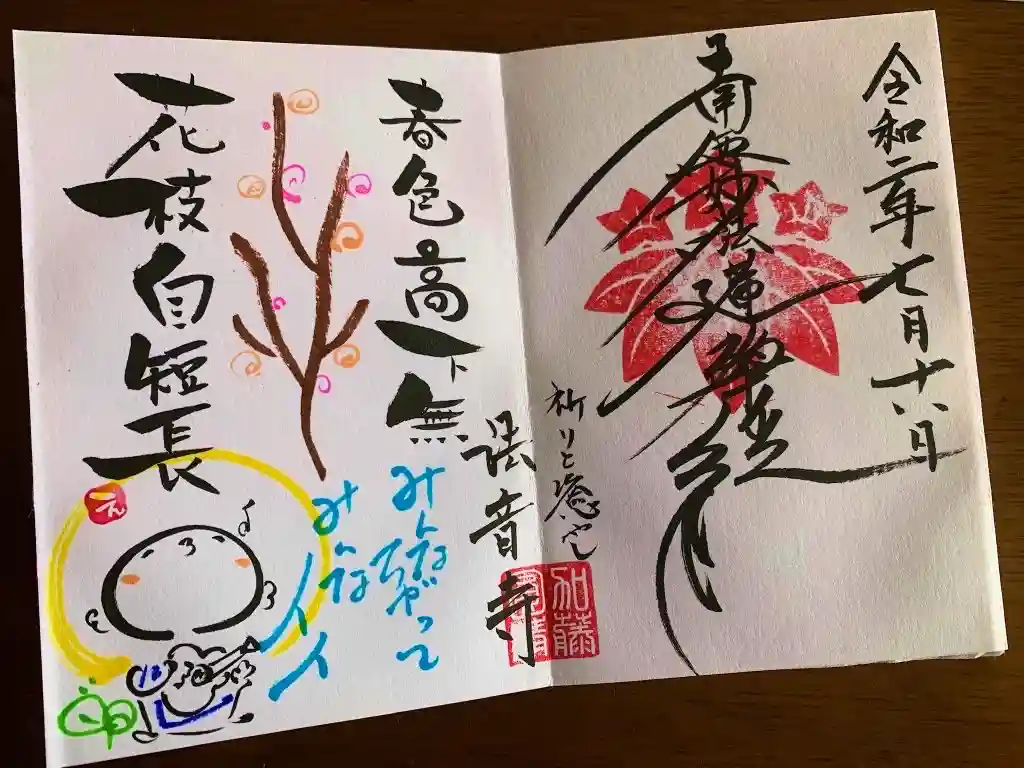 令和二年七月十八日
南無妙法蓮華経
祈りと癒やし
法音寺
加藤
春色高下無
花枝自短長
みんな
ちがって
みんな
イイ
えん